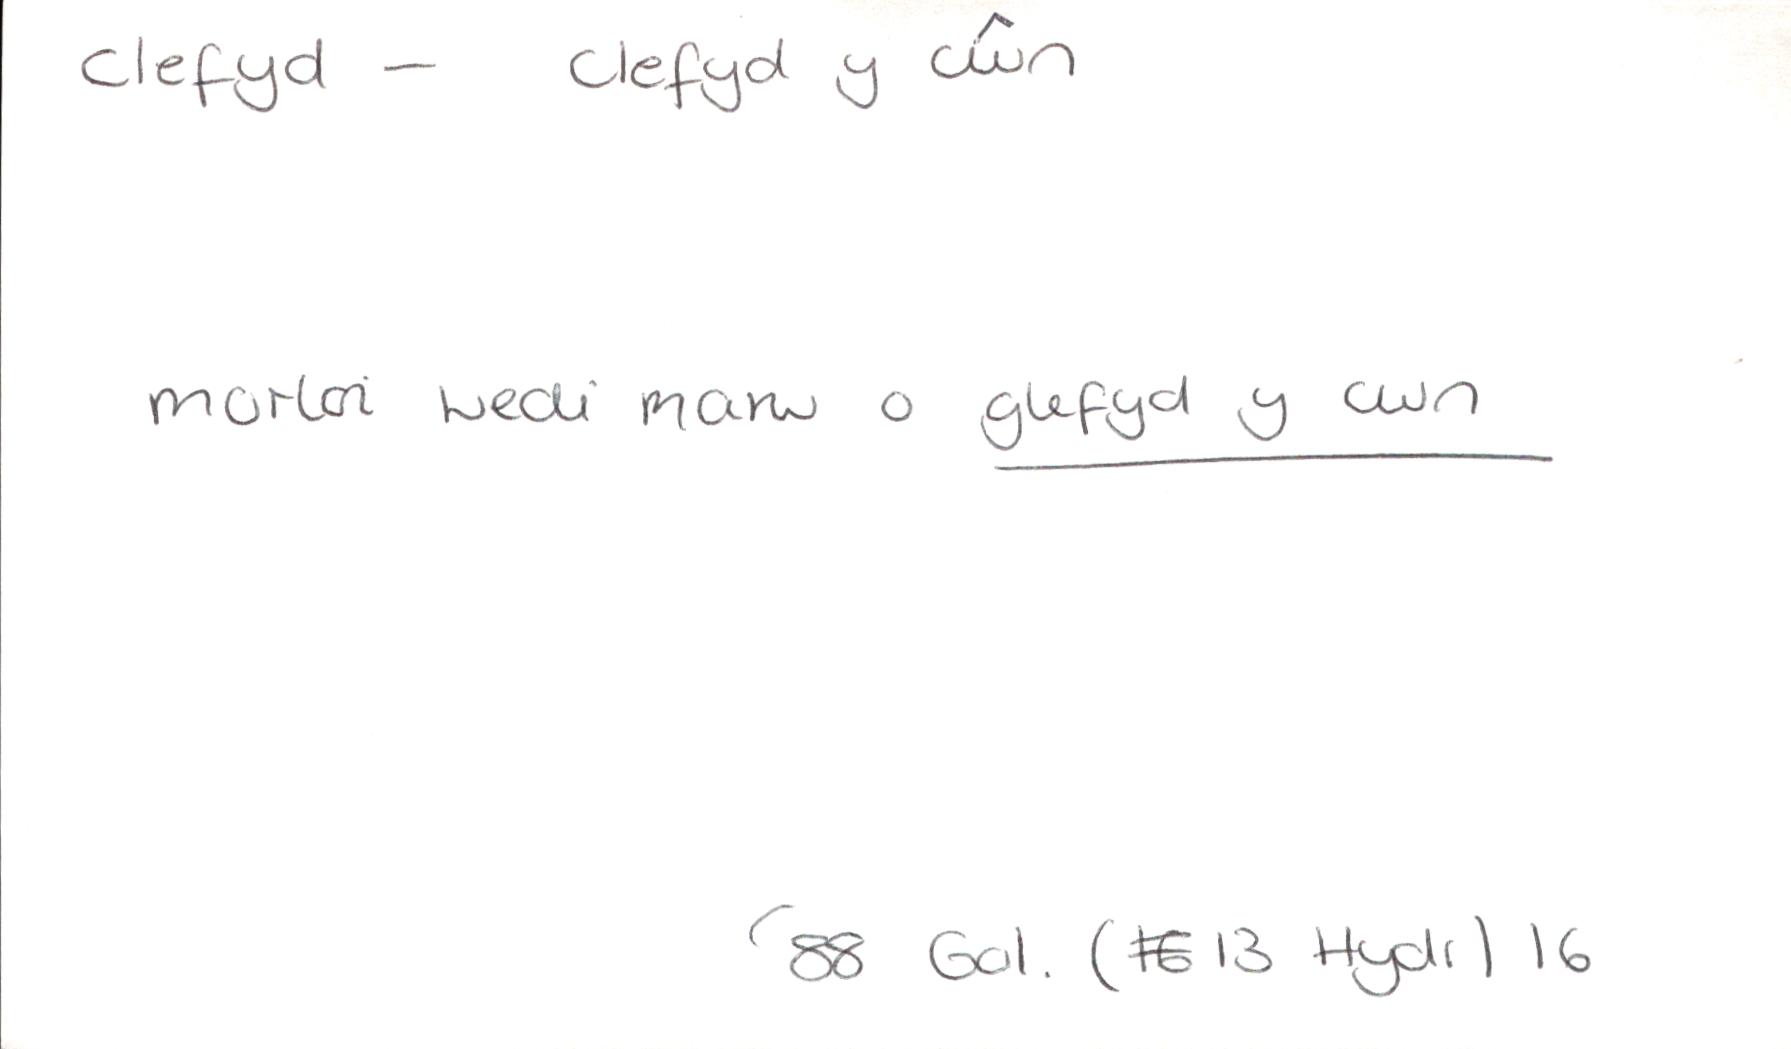 clefyd - clefyd y cŵn
morloi wedi marw o glefyd y cwn
'88 Gol. (16 13 Hydr) 16